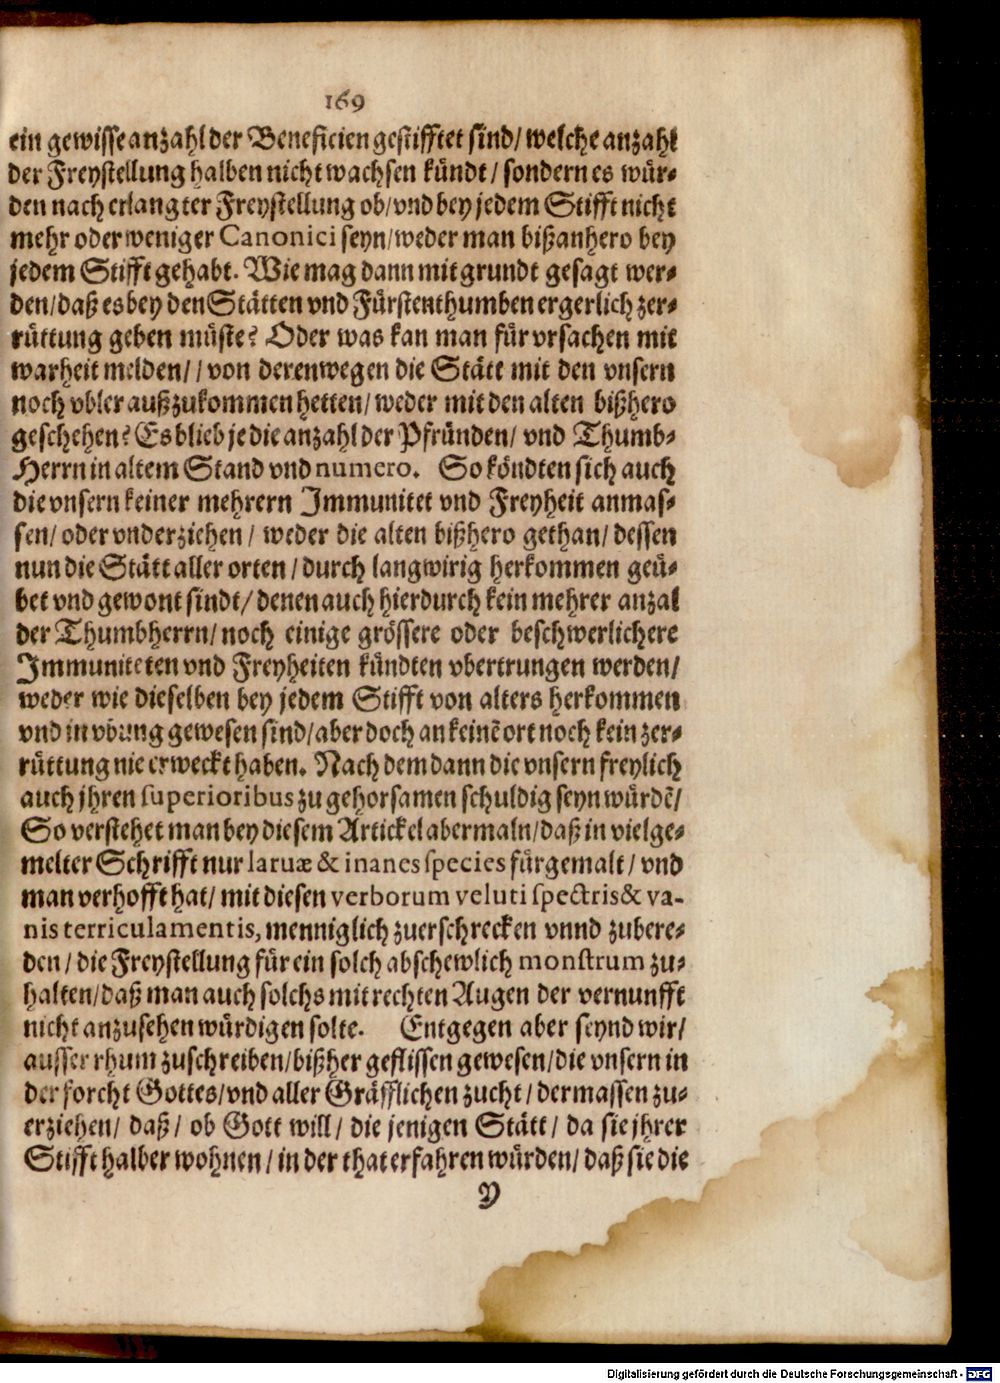 169
ein gewisse anzahl der Beneficien gestifftet sind/ welche anzahl
der Freystellung halben nicht wachsen kündt / sondern es wür-
den nach erlangter Freystellung ob/vnd bey jedem Stifft nicht
mehr oder weniger Canonici seyn/weder man bißanhero bey
jedem Stifft gehabt. Wie mag dann mit grundt gesagt wer-
den/daß es bey den Stätten vnd Fürstenthumben ergerlich zer-
rüttung geben müste? Oder was kan man für vrsachen mit
warheit melden/ / von derenwegen die Stätt mit den vnsern
noch vbler außzukommen hetten/ weder mit den alten bißhero
geschehen? Es blieb je die anzahl der Pfründen/ vnd Thumb-
Herrn in altem Stand vnd numero. So köndten sich auch
die vnsern keiner mehrern Immunitet vnd Freyheit anmas-
sen/ oder vnderziehen / weder die alten bißhero gethan/ dessen
nun die Stätt aller orten / durch langwirig herkommen geü-
bet vnd gewont sindt/ denen auch hierdurch kein mehrer anzal
der Thumbherrn/ noch einige grössere oder beschwerlichere
Immuniteten vnd Freyheiten kündten vbertrungen werden/
weder wie dieselben bey jedem Stifft von alters herkommen
vnd in vbung gewesen sind/aber doch an keinē ort noch kein zer-
rüttung nie erweckt haben. Nach dem dann die vnsern freylich
auch jhren superioribus zu gehorsamen schuldig seyn würdē/
So verstehet man bey diesem Artickel abermaln/daß in vielge-
melter Schrifft nur laruæ & inanes species fürgemalt/ vnd
man verhofft hat/ mit diesen verborum veluti spectris & va-
nis terriculamentis, menniglich zuerschrecken vnnd zubere-
den / die Freystellung für ein solch abschewlich monstrum zu-
halten/daß man auch solchs mit rechten Augen der vernunfft
nicht anzusehen würdigen solte. Entgegen aber seynd wir/
ausser rhum zuschreiben/bißher geflissen gewesen/die vnsern in
der forcht Gottes/vnd aller Gräfflichen zucht / dermassen zu-
erziehen/ daß/ ob Gott will/ die jenigen Stätt/ da sie jhrer
Stifft halber wohnen / in der that erfahren würden/ daß sie die
Y
Digitalisierung gefördert durch die Deutsche Forschungsgemeinschaft - DFG